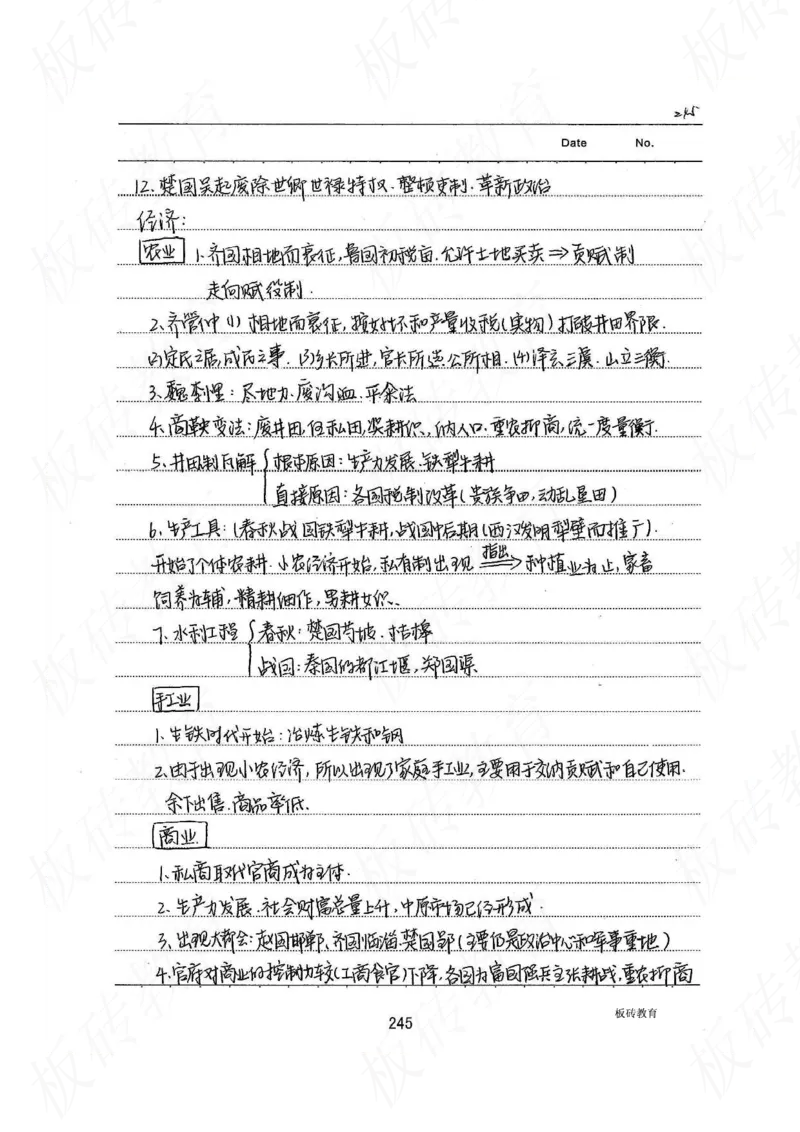 245
Date No.
12、楚国吴起废除世卿世禄特权、整顿吏制、革新政治
经济：
农业 1、齐国相地而衰征，鲁国初税亩、允许土地买卖⇒贡赋制
走向赋役制．
2、齐管仲 (1) 相地而衰征，按好坏和产量收税(实物) 打破井田界限．
(2)定民之居，成民之事．(3)乡长所进，官长所选，公所相．(4)泽立三虞．山立三衡
3、魏李悝：尽地力、废沟洫、平籴法
4、商鞅变法：废井田，任私田，奖耕织，纳人口、重农抑商，统一度量衡．
5、井田制瓦解 根本原因：生产力发展、铁犁牛耕
直接原因：各国税制改革(贵族争田，动乱量田)
6、生产工具：(春秋战国铁犁牛耕，战国中后期(西汉发明犁壁而推广)．
开始了个体农耕．小农经济开始，私有制出现 指出⇒ 种植业为止，家畜
饲养为辅，精耕细作，男耕女织、
7、水利工程 春秋：楚国芍坡、桔槔
战国：秦国的都江堰，郑国渠
手工业
1、生铁时代开始：冶炼生铁和钢
2、由于出现小农经济，所以出现了家庭手工业，主要用于交纳贡赋和自己使用．
余下出售、商品率低．
商业
1、私商取代官商成为主体．
2、生产力发展、社会财富总量上升，中原市场已经形成．
3、出现大都会：赵国邯郸、齐国临淄、楚国郢(主要仍是政治中心和军事重地)
4、官府对商业的控制力较(工商食官)下降，各国为富国强兵主张耕战，重农抑商
245
板砖教育
板砖教育